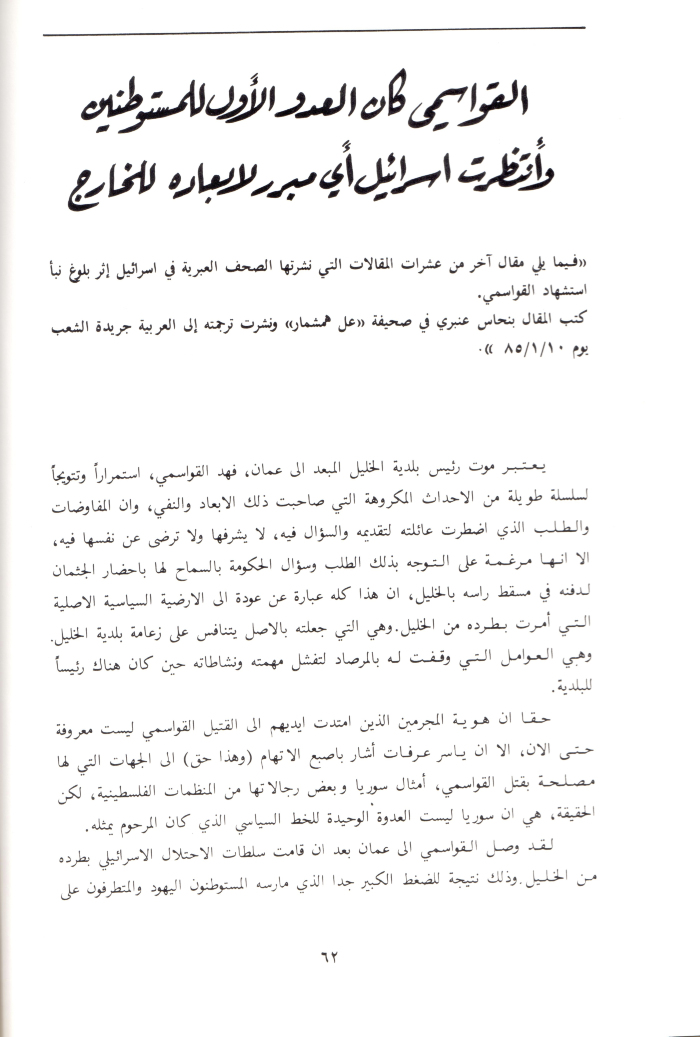 القواسمي كان العدو الأول للمستوطنين
وأنتظرت اسرائيل أي مبرر لابعاده للخارج
«فيما يلي مقال آخر من عشرات المقالات التي نشرتها الصحف العبرية في اسرائيل إثر بلوغ نبأ
استشهاد القواسمي.
كتب المقال بنحاس عنبري في صحيفة «عل همشمار» ونشرت ترجمته إلى العربية جريدة الشعب
يوم ٨٥/١/١٠ ».
يعتبر موت رئيس بلدية الخليل المبعد الى عمان، فهد القواسمي، استمراراً وتتويجاً
لسلسلة طويلة من الاحداث المكروهة التي صاحبت ذلك الابعاد والنفي، وان المفاوضات
والطلب الذي اضطرت عائلته لتقديمه والسؤال فيه، لا يشرفها ولا ترضى عن نفسها فيه،
الا انها مرغمة على التوجه بذلك الطلب وسؤال الحكومة بالسماح لها باحضار الجثمان
لدفنه في مسقط راسه بالخليل، ان هذا كله عبارة عن عودة الى الارضية السياسية الاصلية
التي أمرت بطرده من الخليل.وهي التي جعلته بالاصل يتنافس على زعامة بلدية الخليل.
وهي العوامل التي وقفت له بالمرصاد لتفشل مهمته ونشاطاته حين كان هناك رئيساً
للبلدية.
حقا ان هوية المجرمين الذين امتدت ايديهم الى القتيل القواسمي ليست معروفة
حتى الان، الا ان ياسر عرفات أشار باصبع الاتهام (وهذا حق) الى الجهات التي لها
مصلحة بقتل القواسمي، أمثال سوريا وبعض رجالاتها من المنظمات الفلسطينية، لكن
الحقيقة، هي ان سوريا ليست العدوة الوحيدة للخط السياسي الذي كان المرحوم يمثله.
لقد وصل القواسمي الى عمان بعد ان قامت سلطات الاحتلال الاسرائيلي بطرده
من الخليل.وذلك نتيجة للضغط الكبير جدا الذي مارسه المستوطنون اليهود والمتطرفون على
٦٢